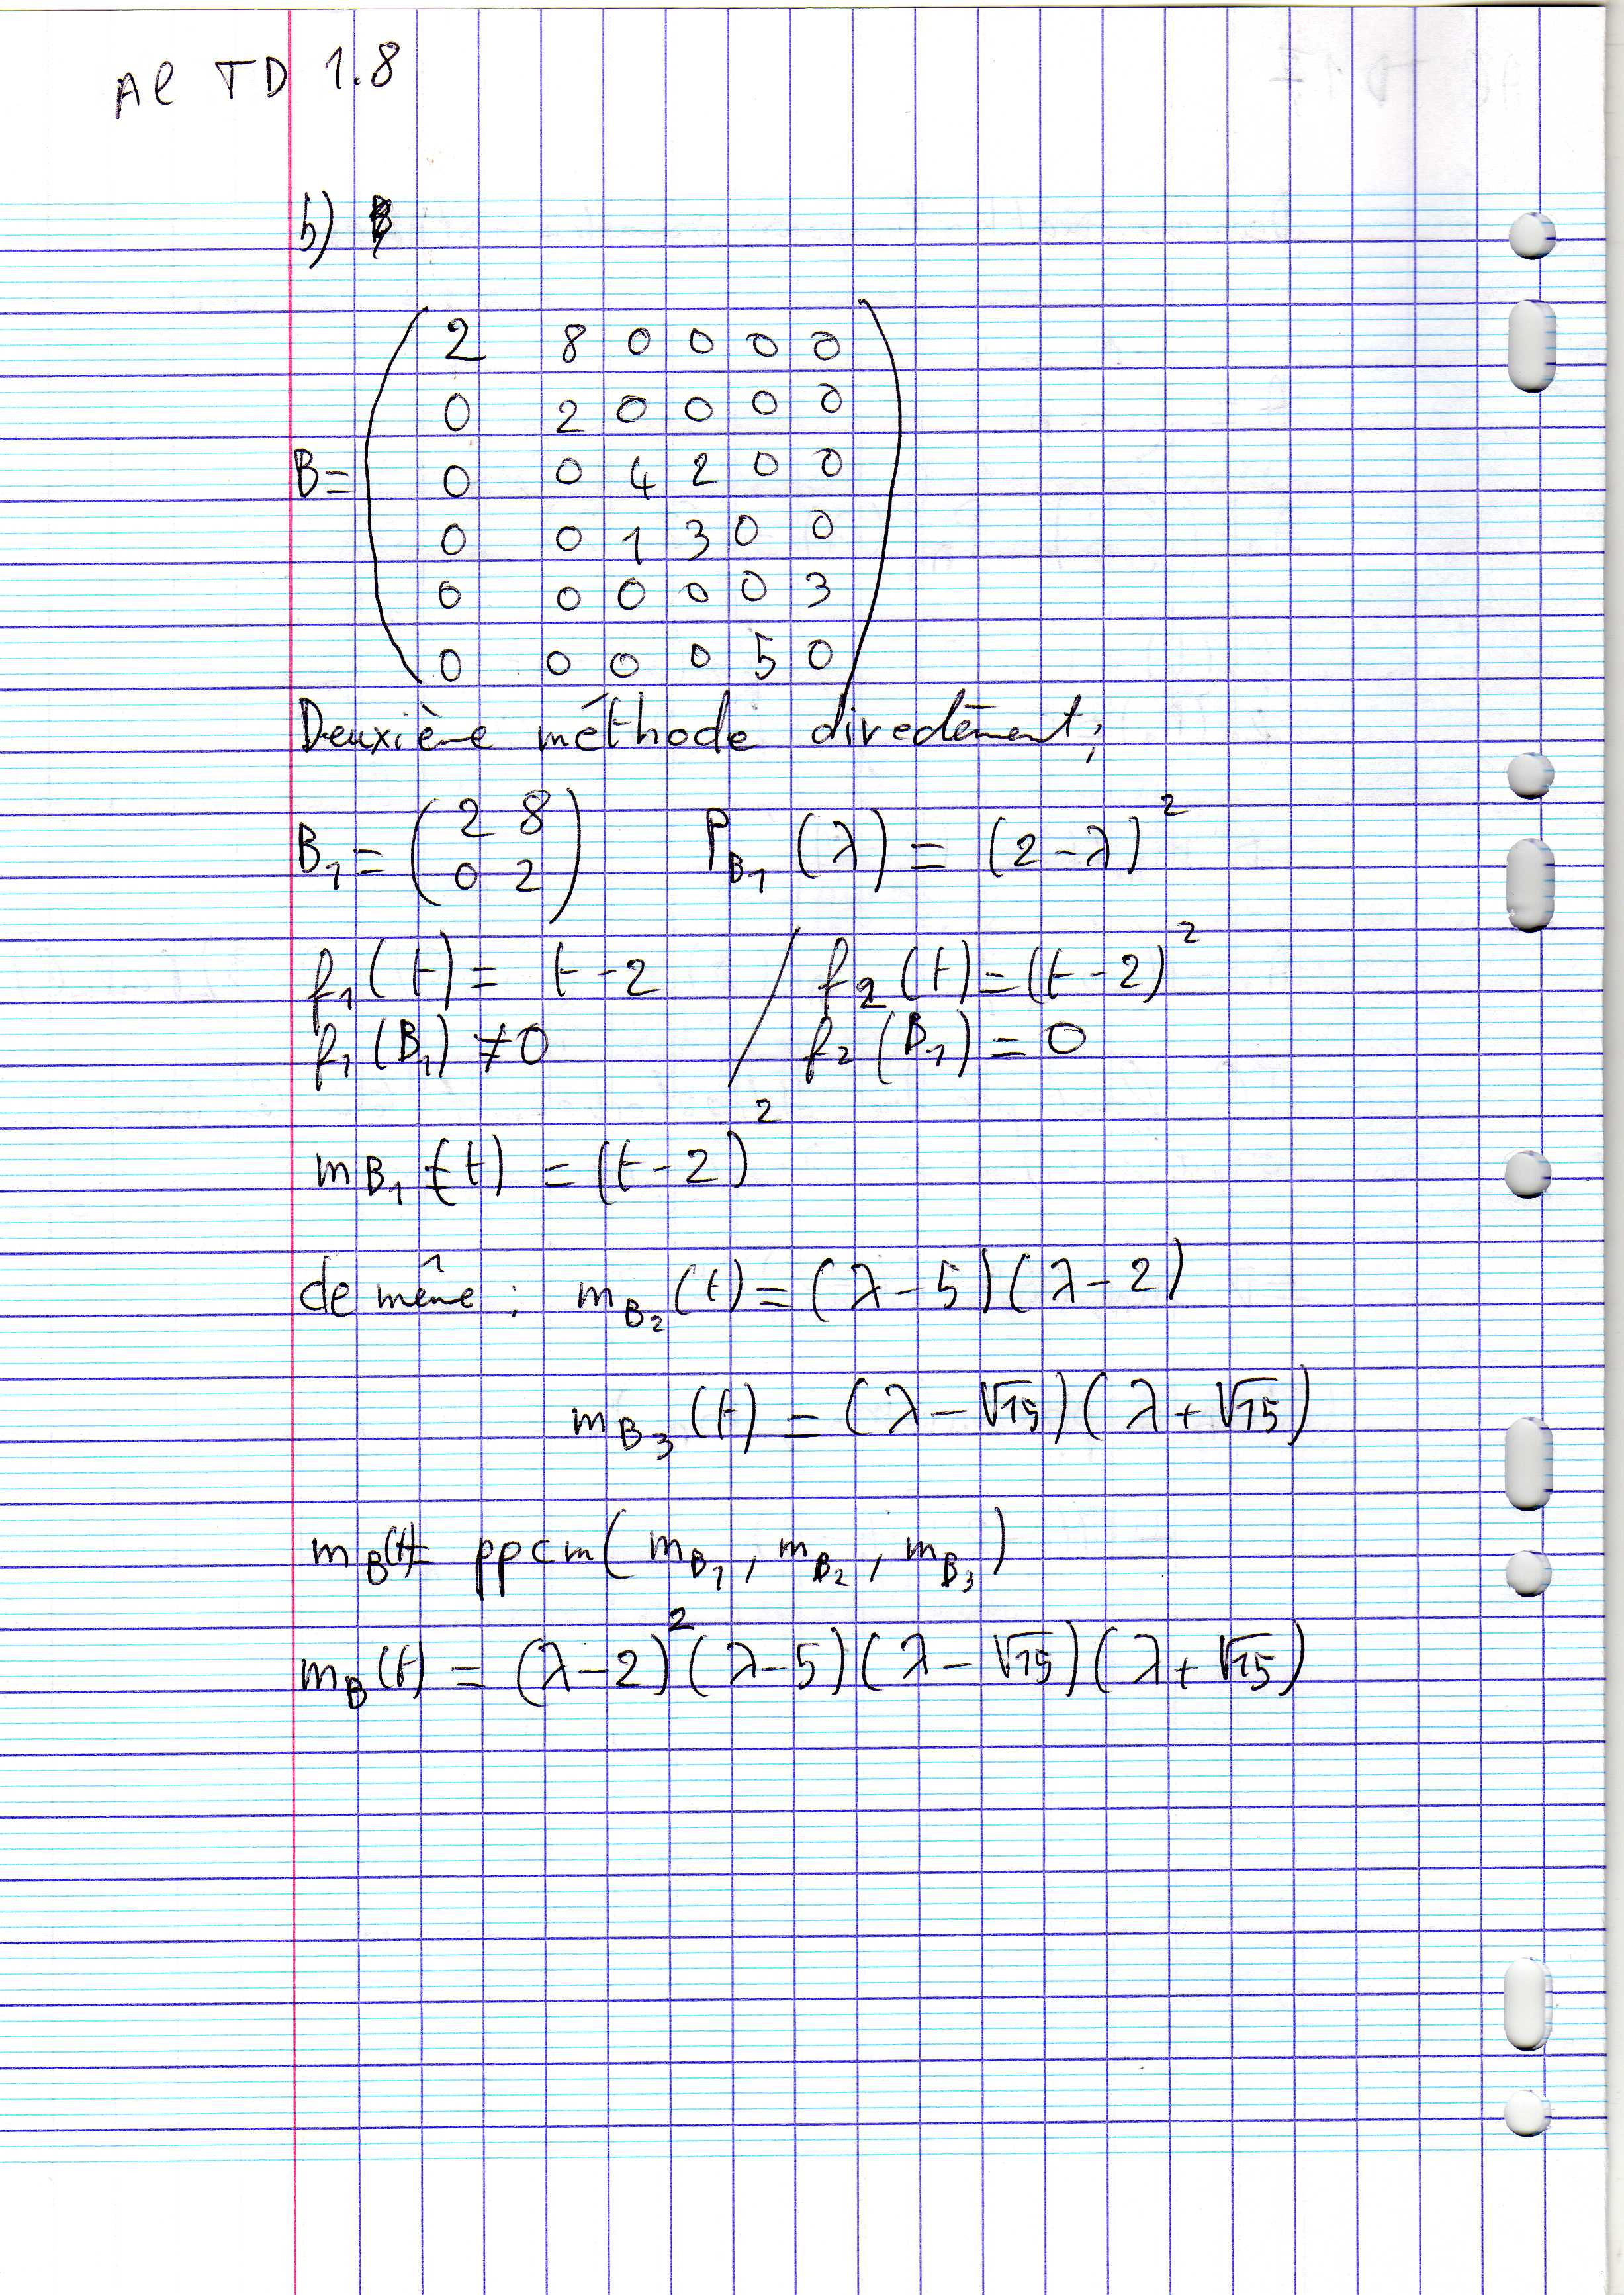 Al TD 1.8
b)
B = ( 2 8 0 0 0 0
0 2 0 0 0 0
0 0 4 2 0 0
0 0 1 3 0 0
0 0 0 0 0 3
0 0 0 0 5 0 )
Deuxième méthode directement;
B₁ = ( 2 8
0 2 ) P_B₁ (λ) = (2-λ)²
f₁(t) = t-2 / f₂(t) = (t-2)²
f₁(B₁) ≠ 0 / f₂(B₁) = 0
m_B₁(t) = (t-2)²
de même : m_B₂(t) = (λ-5)(λ-2)
m_B₃(t) = (λ-√15)(λ+√15)
m_B(t) = ppcm(m_B₁, m_B₂, m_B₃)
m_B(t) = (λ-2)²(λ-5)(λ-√15)(λ+√15)